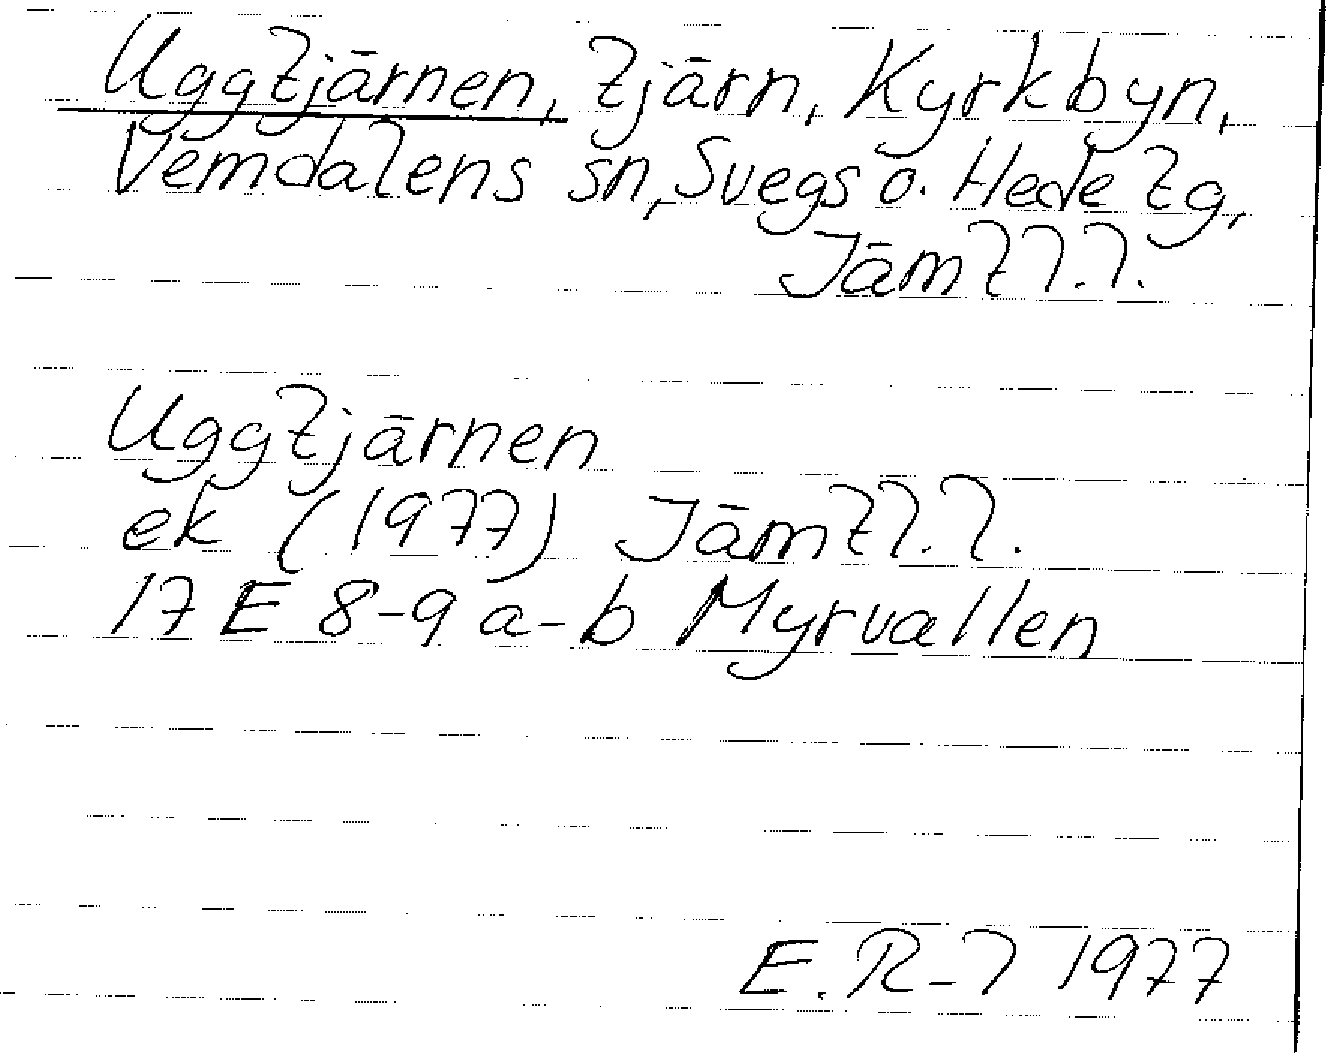 Uggtjärnen, tjärn, Kyrkbyn,
Vemdalens sn, Svegs o. Hede tg,
Jämtl.l.
Uggtjärnen
ek (1977) Jämtl.l.
17 E 8-9 a-b Myrvallen
E.R-l 1977